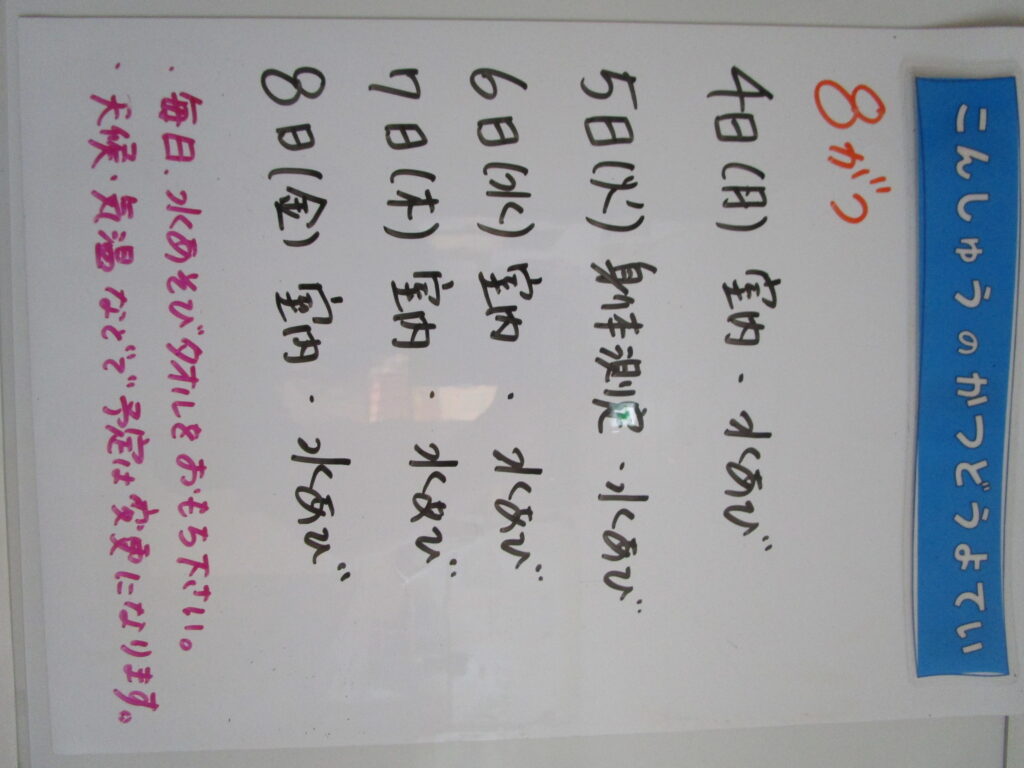 こんしゅうのかつどうよてい
8がつ
4日(月) 室内・水あび
5日(火) 身体測定・水あび
6日(水) 室内・水あび
7日(木) 室内・水あび
8日(金) 室内・水あび
・毎日、水あそびタオルをおもち下さい。
・天候・気温などで予定は変更になります。